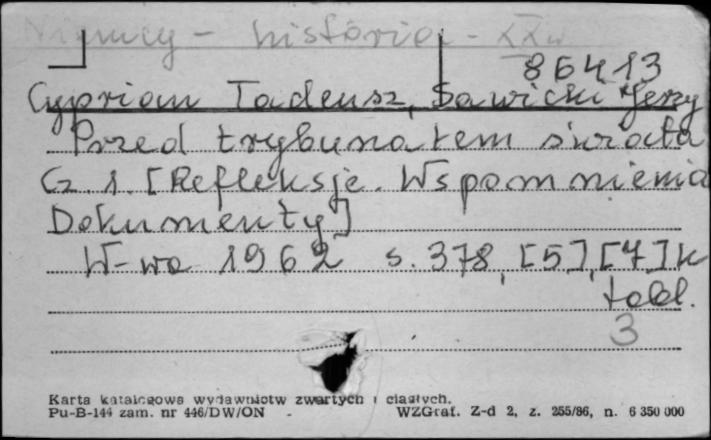 Niemcy - historia - XX w
86413
Cyprian Tadeusz, Sawicki Jerzy
Przed trybunałem świata
Cz. 1. [Refleksje. Wspomnienia
Dokumenty]
W-wa 1962 s. 378, [5], [7] k
tabl.
3
Karta katalogowa wydawnictw zwartych i ciągłych.
Pu-B-144 zam. nr 446/DW/ON - WZGraf. Z-d 2, z. 255/86, n. 6 350 000